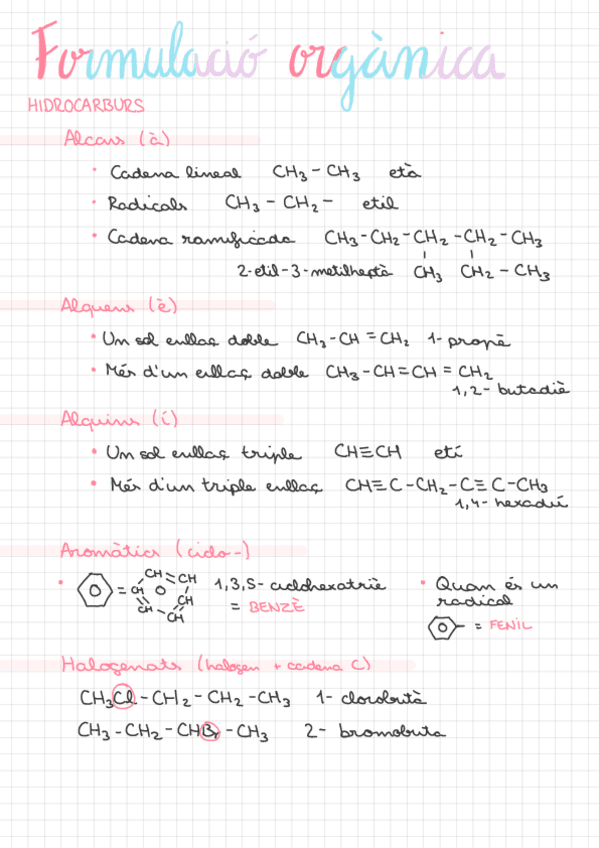 Formulació orgànica
HIDROCARBURS
Alcans (à)
• Cadena lineal CH₃ – CH₃ età
• Radicals CH₃ – CH₂ – etil
• Cadena ramificada CH₃-CH₂-CH₂-CH₂-CH₃
2-etil-3-metilheptà CH₃ CH₂ – CH₃
Alquens (è)
• Un sol enllaç doble CH₃-CH=CH₂ 1-propè
• Més d'un enllaç doble CH₃-CH=CH=CH₂
1,2-butadiè
Alquins (í)
• Un sol enllaç triple CH≡CH etí
• Més d'un triple enllaç CH≡C-CH₂-C≡C-CH₃
1,4-hexadií
Aromàtics (ciclo-)
• = CH=CH CH CH CH-CH 1,3,5-ciclohexatriè
= BENZÈ
• Quan és un
radical
= FENIL
Halogenats (halogen + cadena C)
CH₃Cl-CH₂-CH₂-CH₃ 1-clorobutà
CH₃-CH₂-CHBr-CH₃ 2-bromobuta